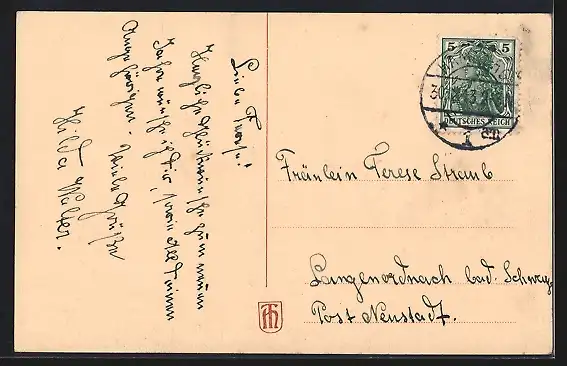 Liebe Frose!
Herzliche Glückwünsche zum neuen
Jahre wünsche ich Dir, sowie all Deinen
Angehörigen. Viele Grüße
Hilda Walter.
5 5
DEUTSCHES REICH
Fräulein Terese Straub
Langenordnach bad. Schwzw.
Post Neustadt.